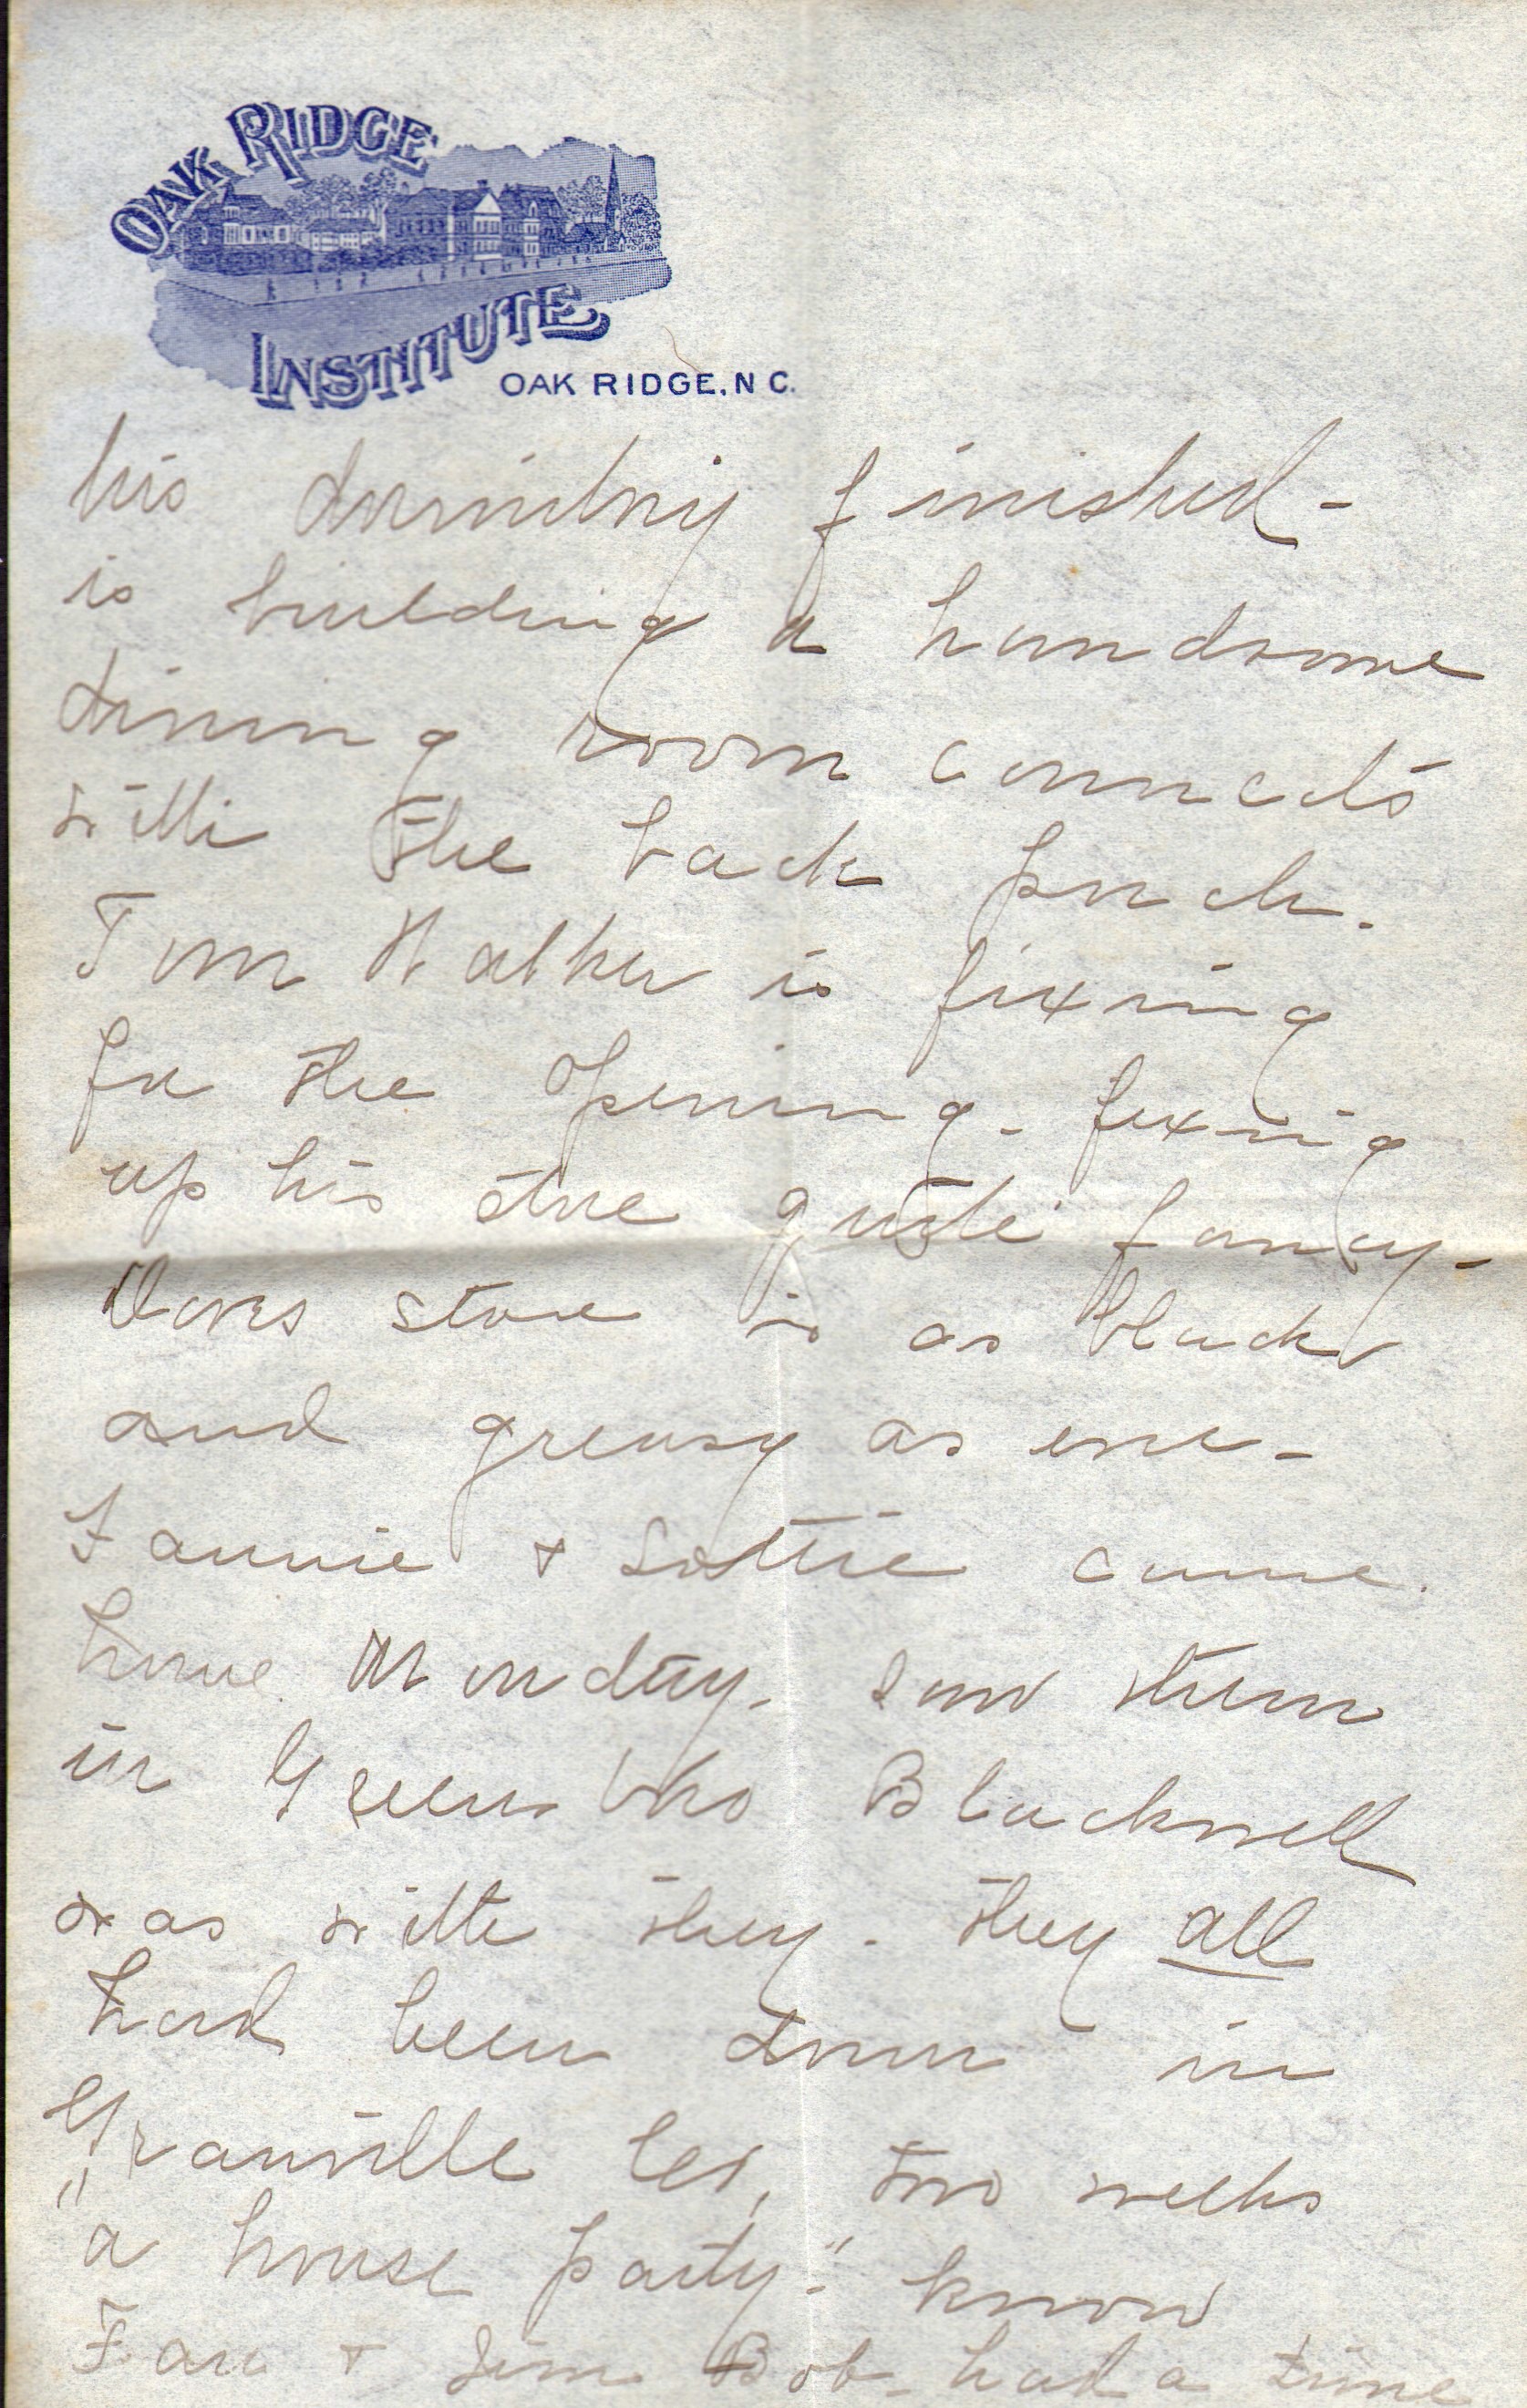 OAK RIDGE
INSTITUTE
OAK RIDGE, N C.
his dormitory finished -
is building a handsome
dining room connects
with the back porch.
Tom Walker is fixing
for the opening - fixing
up his store quite fancy -
store is as black
and greasy as ever -
Fannie + Lottie came
home Monday - saw them
in Greensboro Blacknell
was with they - they all
had been down in
Granville Co, two weeks
"a house party" - know
Fan + Jim Bob - had a time